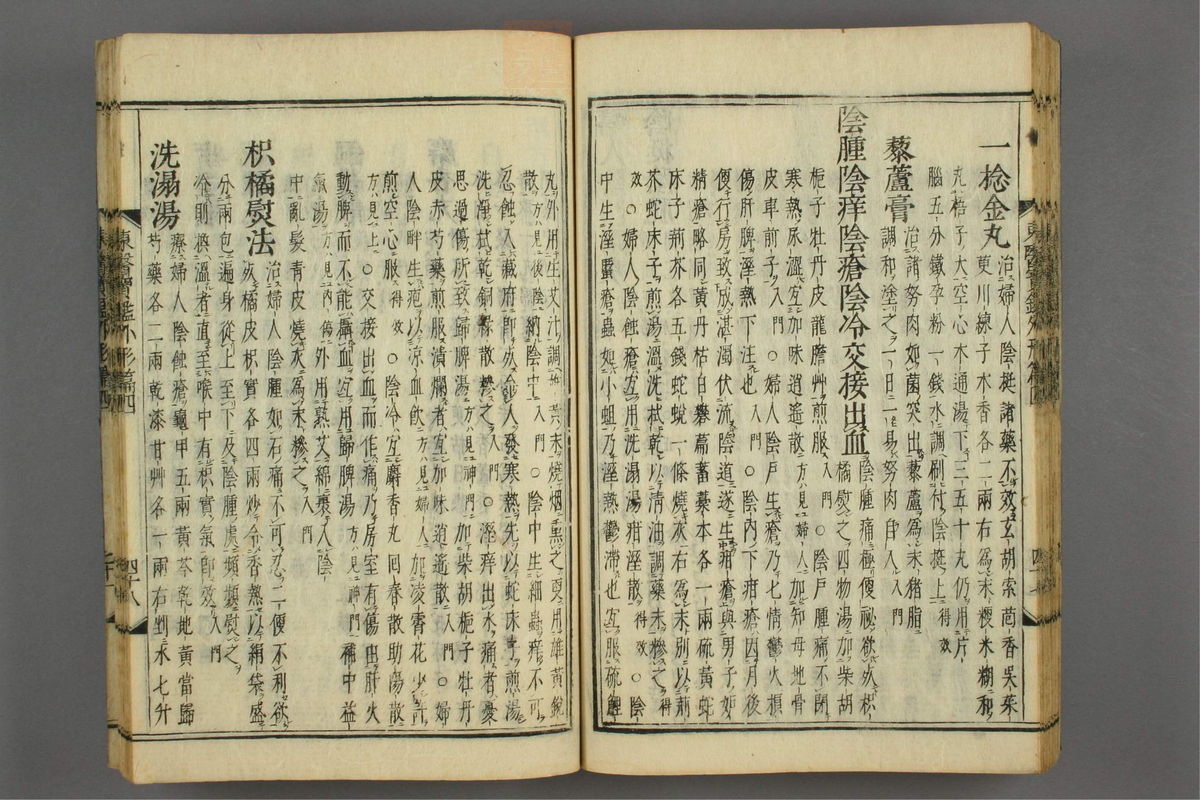 一捻金丸 治婦人陰挺諸藥不效玄胡索茴香吳茱
萸川練子木香各二兩右爲末粳米糊和
丸梧子大空心木通湯下三五十丸仍用片
腦五分鐵孕粉一錢水調刷付陰挺上得效
藜蘆膏 治諸努肉如菌突出藜蘆爲末猪脂
調和塗之一日一易努肉自入入門
陰腫陰痒陰瘡陰冷交接出血 陰腫痛極便秘欲
橘熨之四物湯加柴胡
梔子牡丹皮龍膽艸煎服入門○陰戶腫痛不閉
寒熱尿澁宜加味逍遙散方見婦人加知母地骨
皮車前子入門○婦人陰戶生瘡乃七情鬱火損
傷肝脾溼熱下注也入門○陰內下疳瘡因月後
便行房致成湛濁伏流陰道遂生疳瘡與男子妬
精瘡略同黃丹枯白礬萹蓄藁本各一兩硫黃蛇
床子荊芥各五錢蛇蛻一條燒灰右爲末別以荊
芥蛇床子煎湯溫洗拭乾以清油調藥末糝之得
效○婦人陰蝕瘡宜用洗溻湯疳溼散得效○陰
中生溼䘌瘡蟲如小蛆乃溼熱鬱滯也宜服硫鯉
丸外用生艾汁調雄黃末燒烟熏之更用雄黃銳
散方見後陰納陰中入門○陰中生細蟲痒不可
忍蝕入藏府卽死令人發寒熱先以蛇床子煎湯
洗淨拭乾銅綠散糝之入門○溼痒出水痛者憂
思過傷所致歸脾湯加柴胡梔子牡丹
皮赤芍藥煎服潰爛者宜加味逍遙散入門○婦
人陰畔生疱以凉血飮方見婦人加凌霄花少許
煎空心服得效○陰冷宜麝香丸回春散助陽散
方見上○交接出血而作痛乃房室有傷肝火
動脾而不能攝血宜用歸脾湯方見神門補中益
氣湯方見內傷外用熟艾綿裹入陰
中亂髮靑皮燒灰爲末糝之入門
枳橘熨法 治婦人陰腫如石痛不可忍二便不利欲
死橘皮枳實各四兩炒令香熱以絹袋盛
分兩包遍身從上至下及陰腫處頻頻熨之
冷則換溫者直至喉中有枳實氣卽效入門
洗溻湯 療婦人陰蝕瘡龜甲五兩黃芩乾地黃當歸
芍藥各二兩乾漆甘艸各一兩右剉水七升
東醫寶鑑外形篇四
四十八